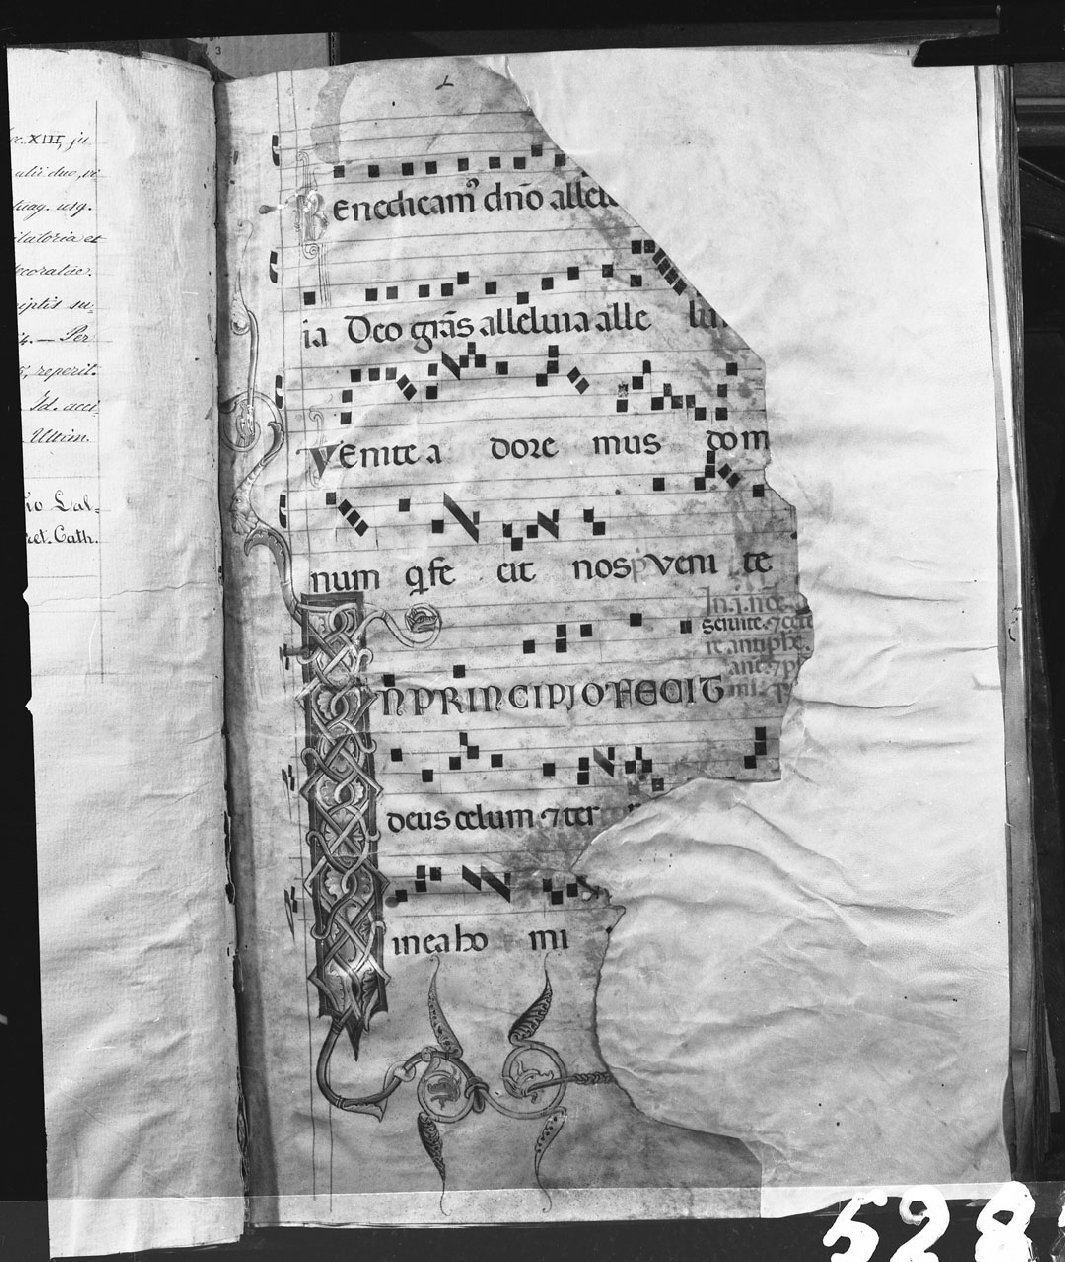 ec. XIII, ju
alii duo, vi
uag. usq.
itatoria et
ecoratae.
iptis su
4. — Per
reperit.
Id. acci
Ultim.
io Lal-
ret. Cath.
Benedicam᾽ dn̄o allelu
ia Deo grās alleluia alle lui
Venite a dore mus dom
num q̄ fe cit nos p̄ veni te
In .i. nō.
sciuite. ⁊ cete
re antiph̄e.
ane. ⁊ p
mi. p
IN PRINCIPIO FECIT
deus celum ⁊ ter
in ea ho mi
528